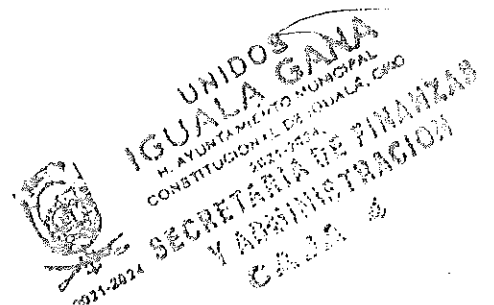 UNIDOS
IGUALA GANA
H. AYUNTAMIENTO MUNICIPAL
CONSTITUCIONAL DE IGUALA, GRO
2021-2024
SECRETARIA DE FINANZAS
Y ADMINISTRACION
CAJA 4
2021-2024